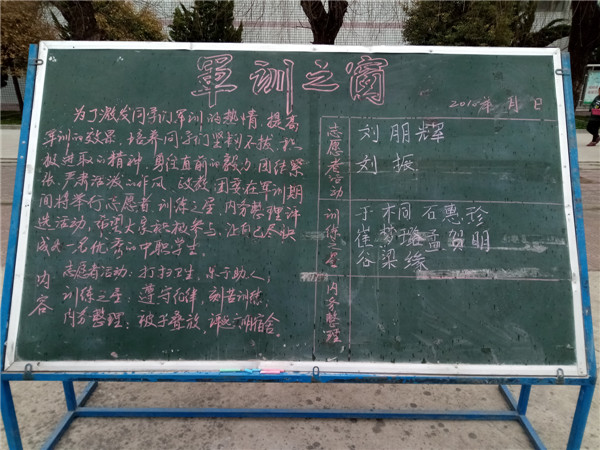 军训之窗
2010年 月 日
为了激发同学们军训的热情 提高
军训的效果 培养同学们坚韧不拔 积
极进取的精神 勇往直前的毅力 团结紧
张 严肃活泼的作风 政教 在军训期
间将举行志愿者 训练之星 内务整理评
选活动 希望大家积极参与 让自己尽快
成为一名优秀的中职学生
内容
志愿者活动：打扫卫生，乐于助人；
训练之星：遵守纪律，刻苦训练
内务整理：被子叠放，评选文明宿舍
志愿者活动
刘朋辉
刘振
训练之星
于桐 石惠珍
崔梦璐 孟贺明
谷梁缘
内务整理